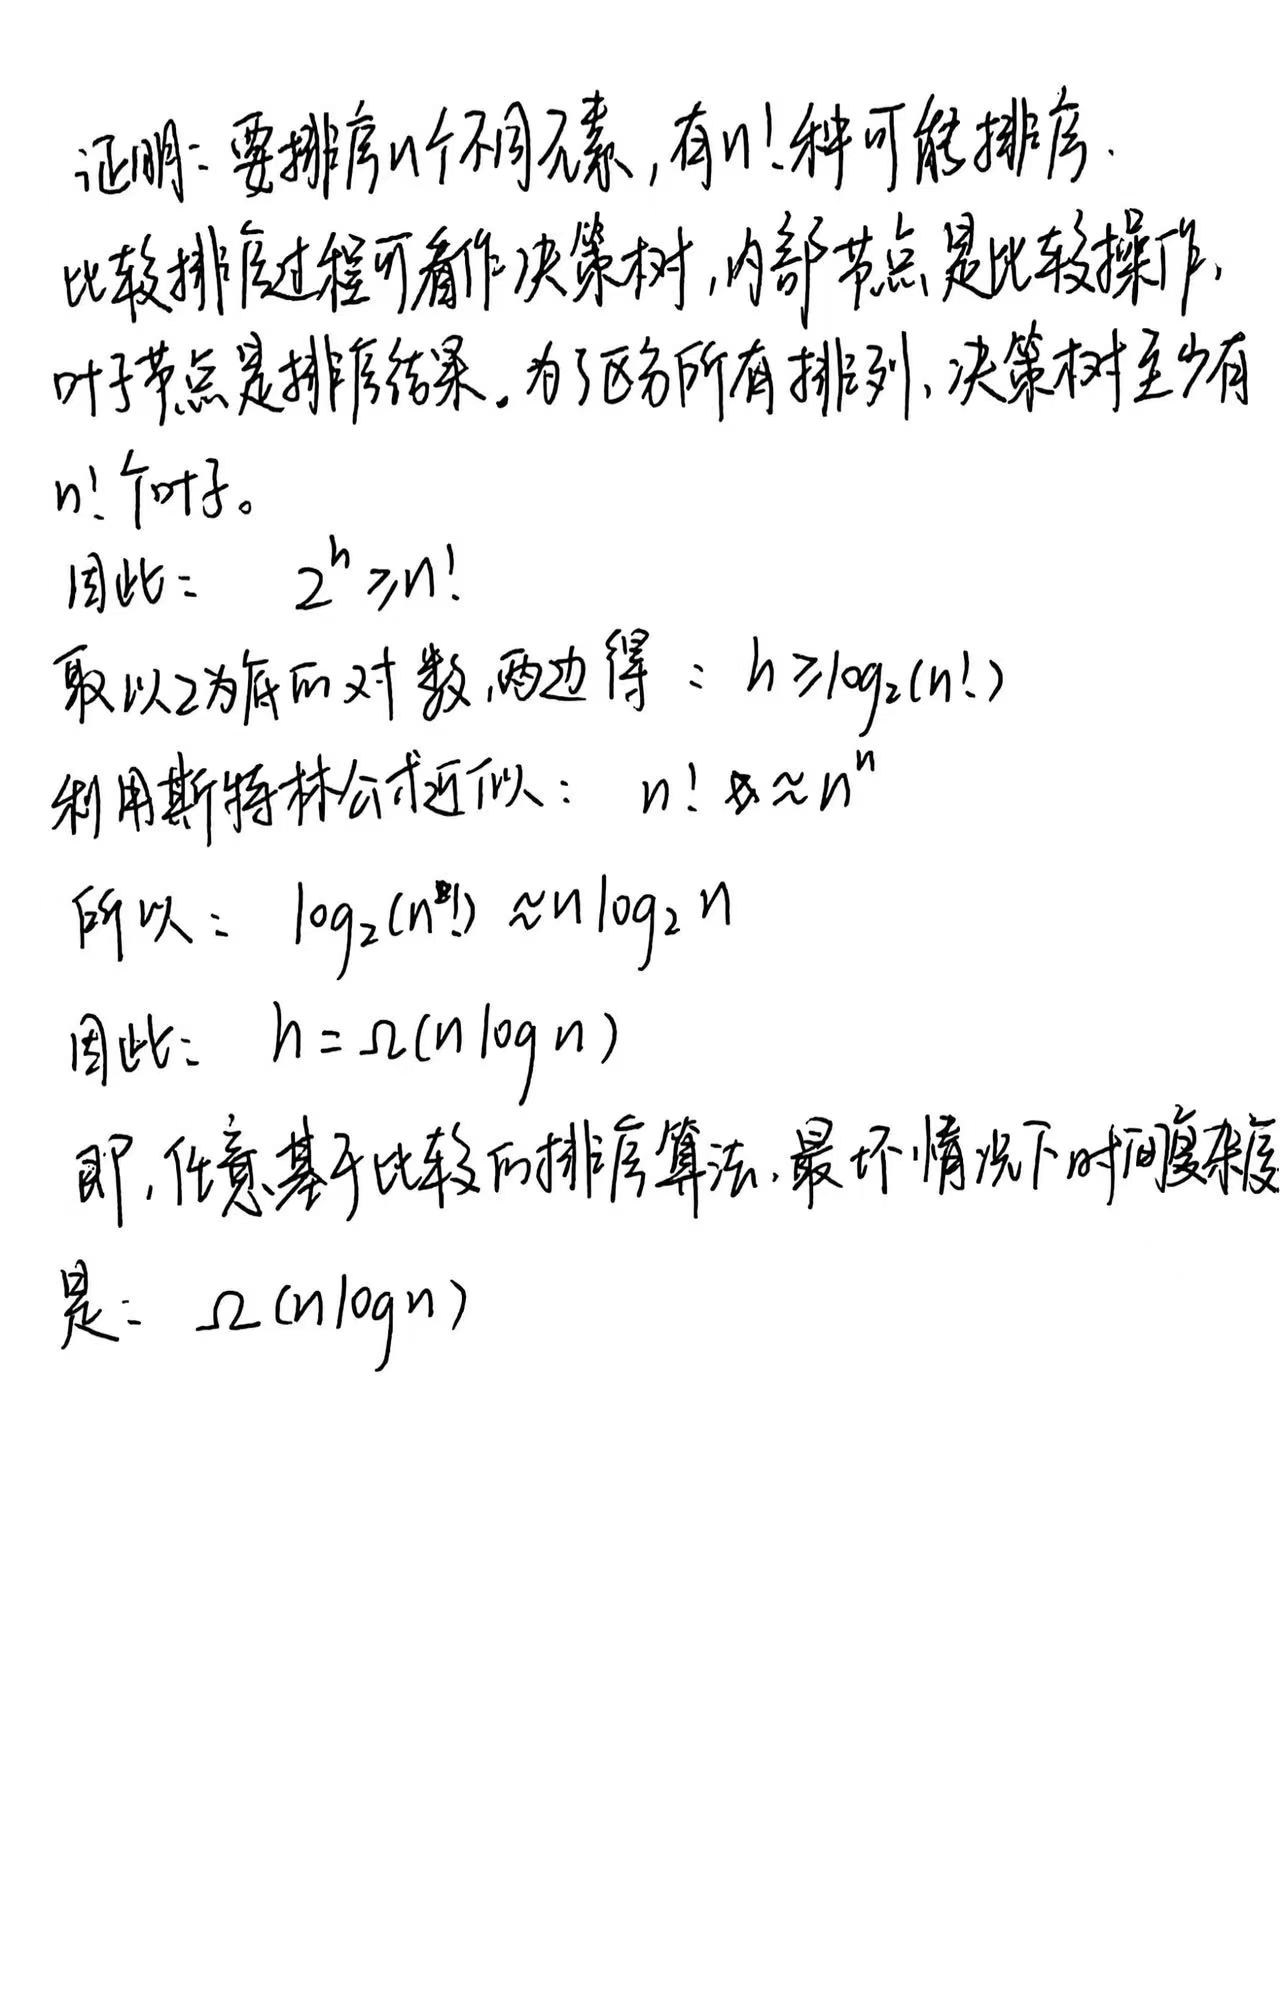 证明：要排序n个不同元素，有n!种可能排序.
比较排序过程可看作决策树，内部节点是比较操作，
叶子节点是排序结果。为了区分所有排列，决策树至少有
n!个叶子。
因此： 2^h ≥ n!
取以2为底的对数，两边得：h ≥ log₂(n!)
利用斯特林公式近似： n! ≈ n^n
所以： log₂(n!) ≈ n log₂ n
因此： h = Ω(n log n)
即，任意基于比较的排序算法，最坏情况下时间复杂度
是： Ω(n log n)